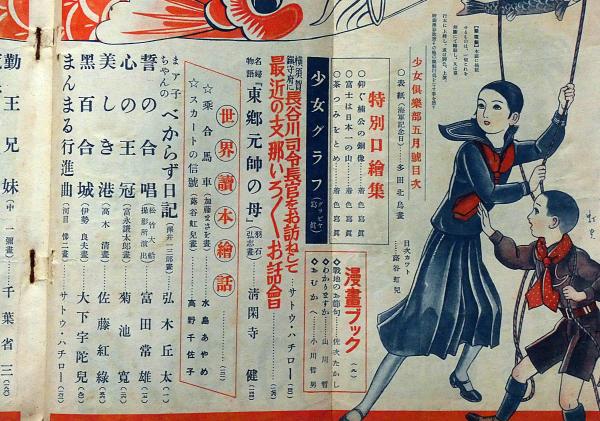 少女倶樂部五月號目次
○表紙(海軍記念日)…多田北烏畫
目次カット……蕗谷虹兒
特別口繪集
○仰ぐ楠公の銅像…着色寫眞
○富士は日本一の山…着色寫眞
○茶つみをとめ…着色寫眞
少女グラフ
漫畫ブック
◇戰地のお節句……佐次たかし
◇わかりますか……山川哲
◇おむかへ……小川哲男
横須賀鎭守府に
長谷川司令長官をお訪ねして
最近の支那いろ〱お話會
サトウ・ハチロー
名婦物語
東郷元帥の母
清閑寺健
世界讀本繪話
☆乘合馬車(加藤まさを畫)……水島あやめ
☆スカートの信號(蕗谷虹兒畫)……高野千佐子
まァ子ちやんの
べからず日記
弘木丘太
誓の合唱
富田常雄
心の王冠
(富永謙太郎畫)
菊池寛
美しき港
(高木清畫)
佐藤紅綠
黑百合城
(伊勢良夫畫)
大下宇陀兒
まんまる行進曲
(河目悌二畫)
サトウ・ハチロー
勤王兄妹
(中一彌畫)
千葉省三